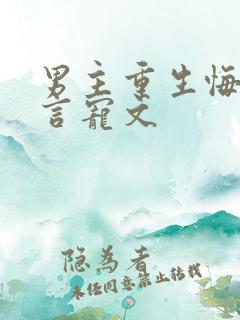 男主重生悔
言宠文
隐为者
未经同意禁止转载